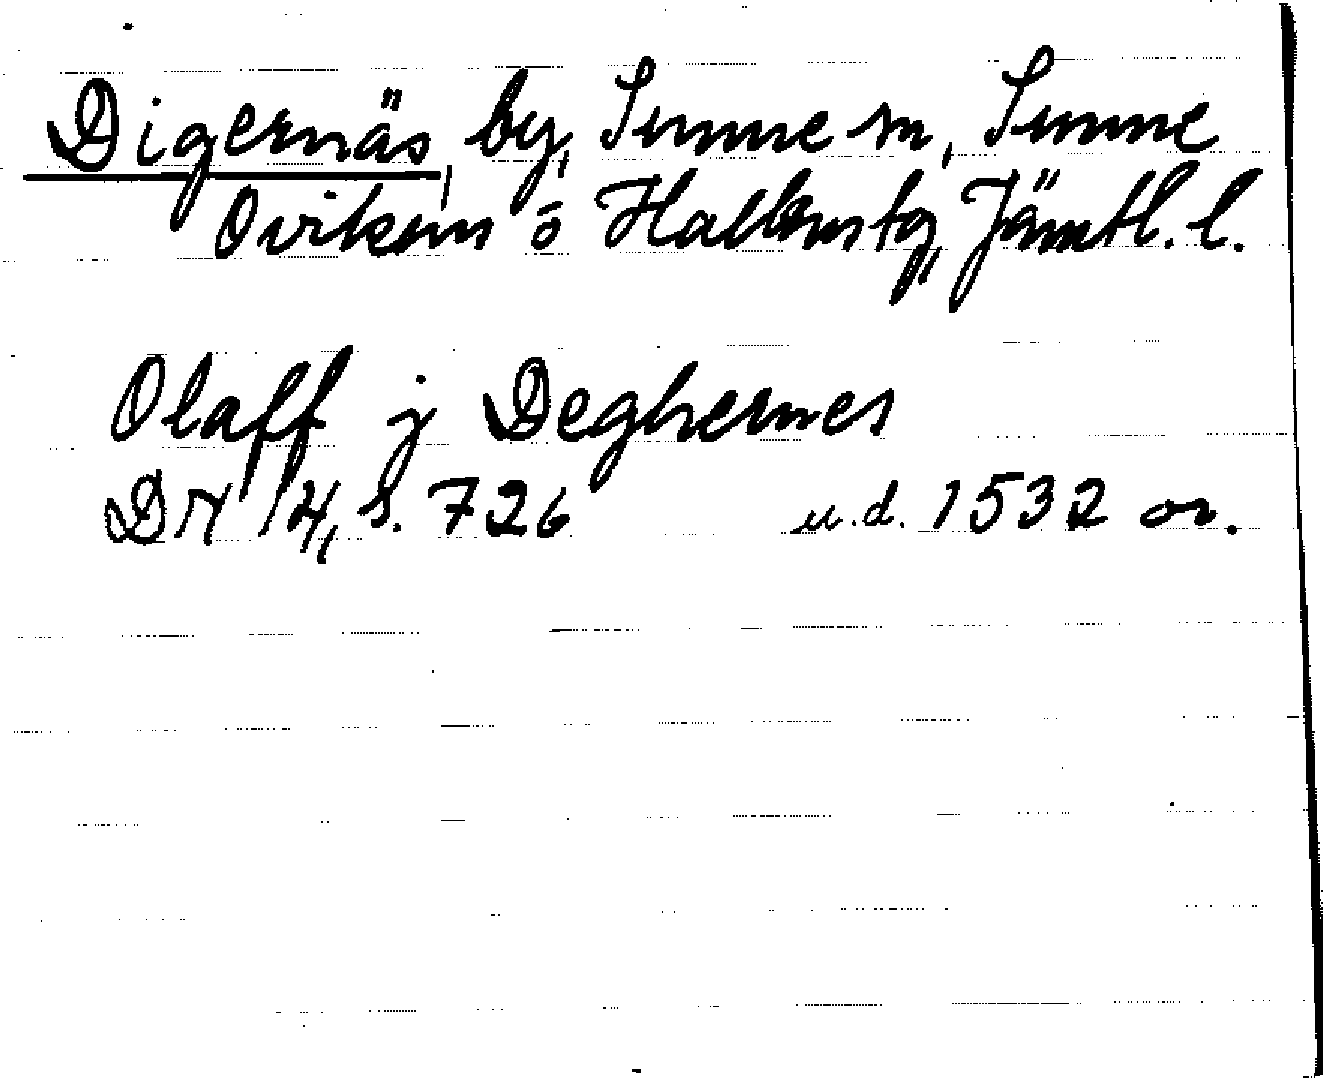 Digernäs, by, Sunne sn, Sunne
Oviken o Hallens tg, Jämtl. l.
Olaff j Deghernes
DN 14, s. 726 u.d. 1532 or.